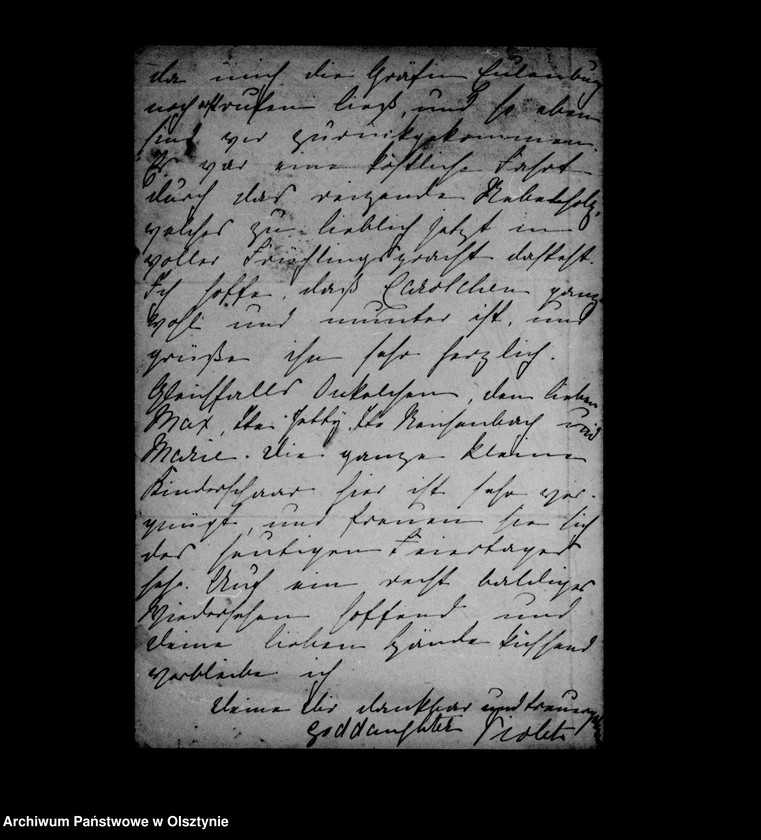 da mich die Gräfin Eulenburg
noch rufen ließ, und so eben
sind wir zurückgekommen.
Es war eine köstliche Fahrt
durch das reizende
welches zu lieblich jetzt in
voller Frühlingspracht dasteht.
Ich hoffe, daß Carolchen ganz
wohl und munter ist, und
grüße ihn sehr herzlich.
Gleichfalls Onkelchen, den lieben
Max, Jetty, Reichenbach und
Marie. Die ganze kleine
Kinderschaar hier ist sehr ver-
gnügt, und freuen sie sich
des heutigen Feiertages
sehr. Auf ein recht baldiges
Wiedersehen hoffend und
Deine lieben Hände küssend
verbleibe ich
Deine Dir dankbar und treu
Goddaughter Violet
Archiwum Państwowe w Olsztynie